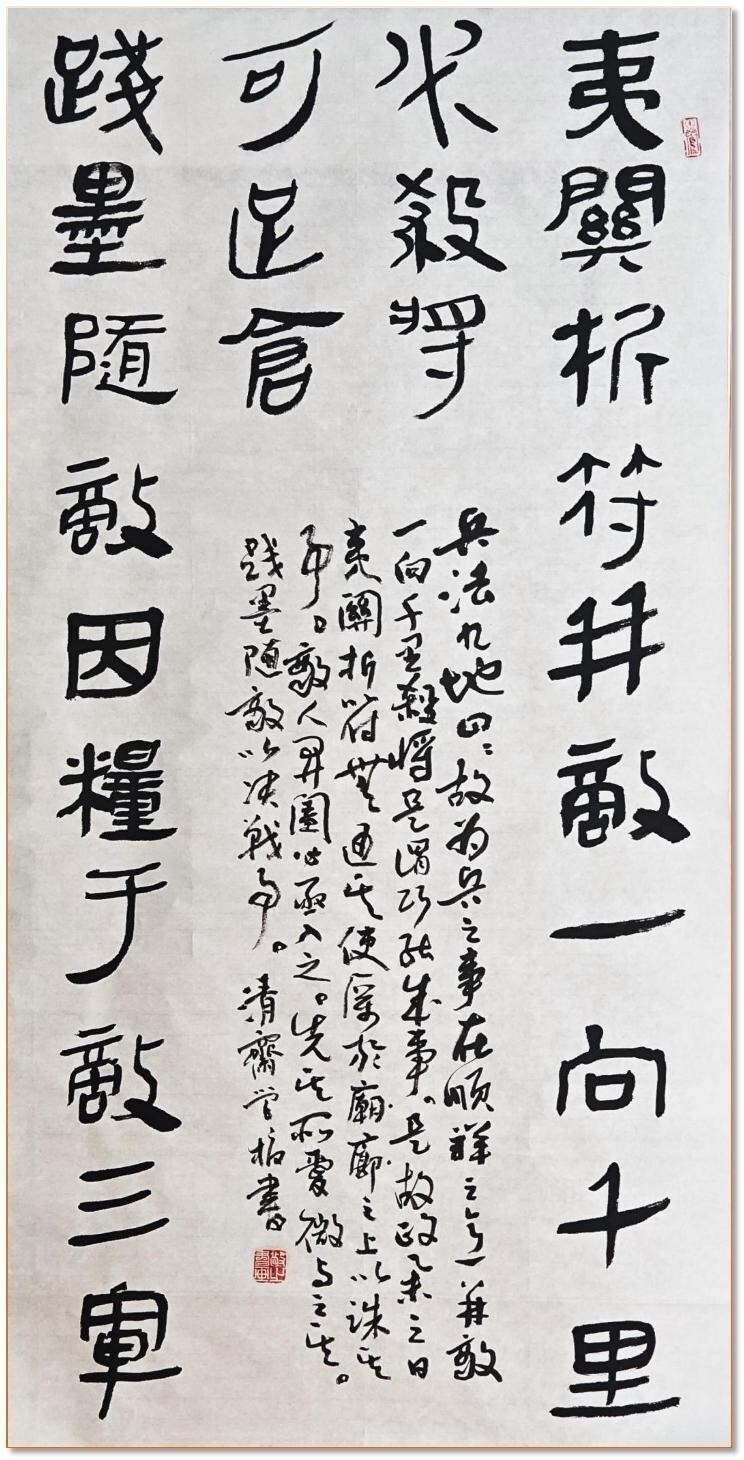 夷關折符并敵一向千里
殺將
可足倉
踐墨隨敵因糧于敵三軍
兵法九地曰：故为兵之事在顺詳之一并敵
一向千里殺將是謂巧能成事。是故政之日
夷關折符無通其使厲於廟廊之上以誅其
事。敵人開闔必亟入之。先其所愛微与之其。
践墨随敵以决戰事。清齋学書